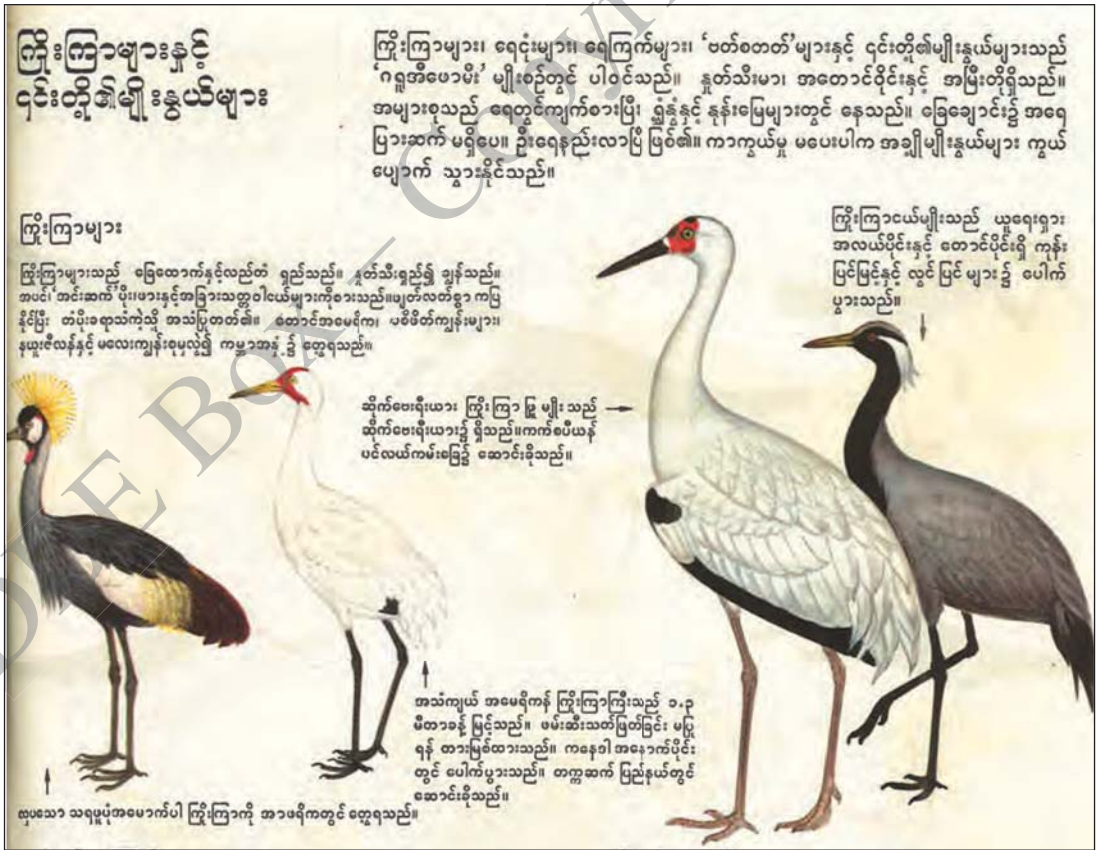 ကြိုးကြာများနှင့်
၎င်းတို့၏မျိုးနွယ်များ
ကြိုးကြာများ၊ ရေငုံးများ၊ ရေကြက်များ၊ ‘ဗတ်စတတ်’များနှင့် ၎င်းတို့၏မျိုးနွယ်များသည်
‘ဂရူအီဖောမီး’ မျိုးစဉ်တွင် ပါဝင်သည်။ နှုတ်သီးမာ၊ အတောင်ဝိုင်းနှင့် အမြီးတိုရှိသည်။
အများစုသည် ရေတွင်ကျက်စားပြီး ရွှံ့နွံနှင့် နုန်းမြေများတွင် နေသည်။ ခြေချောင်း၌ အရေ
ပြားဆက် မရှိပေ။ ဦးရေနည်းလာပြီ ဖြစ်၏။ ကာကွယ်မှု မပေးပါက အချို့မျိုးနွယ်များ ကွယ်
ပျောက် သွားနိုင်သည်။
ကြိုးကြာများ
ကြိုးကြာများသည် ခြေထောက်နှင့်လည်တံ ရှည်သည်။ နှုတ်သီးရှည်၍ ချွန်သည်။
အပင်၊ အင်းဆက် ပိုး၊ဖားနှင့်အခြားသတ္တဝါငယ်များကိုစားသည်။ဖျတ်လတ်စွာ ကပြ
နိုင်ပြီး တံပိုးခရာသံကဲ့သို့ အသံပြုတတ်၏။ တောင်အမေရိက၊ ပစိဖိတ်ကျွန်းများ၊
နယူးဇီလန်နှင့် မလေးကျွန်းစုမှလွဲ၍ ကမ္ဘာအနှံ့၌ တွေ့ရသည်။
ကြိုးကြာငယ်မျိုးသည် ယူရေးရှား
အလယ်ပိုင်းနှင့် တောင်ပိုင်းရှိ ကုန်း
ပြင်မြင့်နှင့် လွင် ပြင် များ ၌ ပေါက်
ပွားသည်။
ဆိုက်ဗေးရီးယား ကြိုးကြာ ဖြူ မျိုး သည်
ဆိုက်ဗေးရီးယား၌ ရှိသည်။ကက်စပီယန်
ပင်လယ်ကမ်းခြေ၌ ဆောင်းခိုသည်။
အသံကျယ် အမေရိကန် ကြိုးကြာကြီးသည် ၁.၃
မီတာခန့် မြင့်သည်။ ဖမ်းဆီးသတ်ဖြတ်ခြင်း မပြု
ရန် တားမြစ်ထားသည်။ ကနေဒါ အနောက်ပိုင်း
တွင် ပေါက်ပွားသည်။ တက္ကဆက် ပြည်နယ်တွင်
ဆောင်းခိုသည်။
လှပသော သရဖူပုံအမောက်ပါ ကြိုးကြာကို အာဖရိကတွင် တွေ့ရသည်။